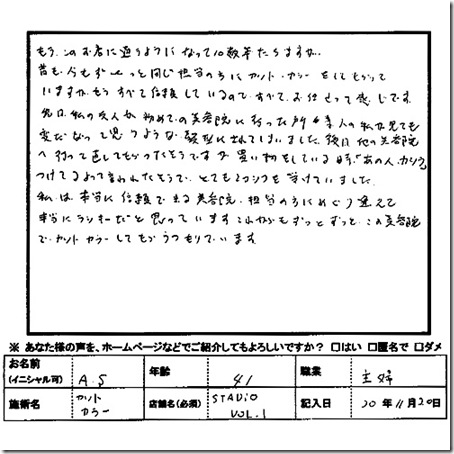 もう、このお店に通うようになって10数年たちますが、
昔も今もずーっと同じ担当の方にカット・カラーをしてもらって
いますが、もうすべて信頼しているので、すべてお任せって感じです。
先日、私の友人が初めての美容院に行った所、素人の私が見ても
変だなって思うような髪型にされてしまいました。後日他の美容院
へ行って直してもらったそうですが買い物をしている時、「あの人、カツラ
つけてるよ」って言われたそうで、とてもショックを受けていました。
私は本当に信頼出来る美容院、担当の方にめぐり逢えて
本当にラッキーだと思っています。これからもずっとずっと、この美容院
で、カットカラーしてもらうつもりでいます。
※ あなた様の声を、ホームページなどでご紹介してもよろしいですか? □はい □匿名で □ダメ
お名前(イニシャル可) A.S 年齢 41 職業 主婦
施術名 カット カラー 店舗名(必須) STADiO VOL.1 記入日 20年11月20日